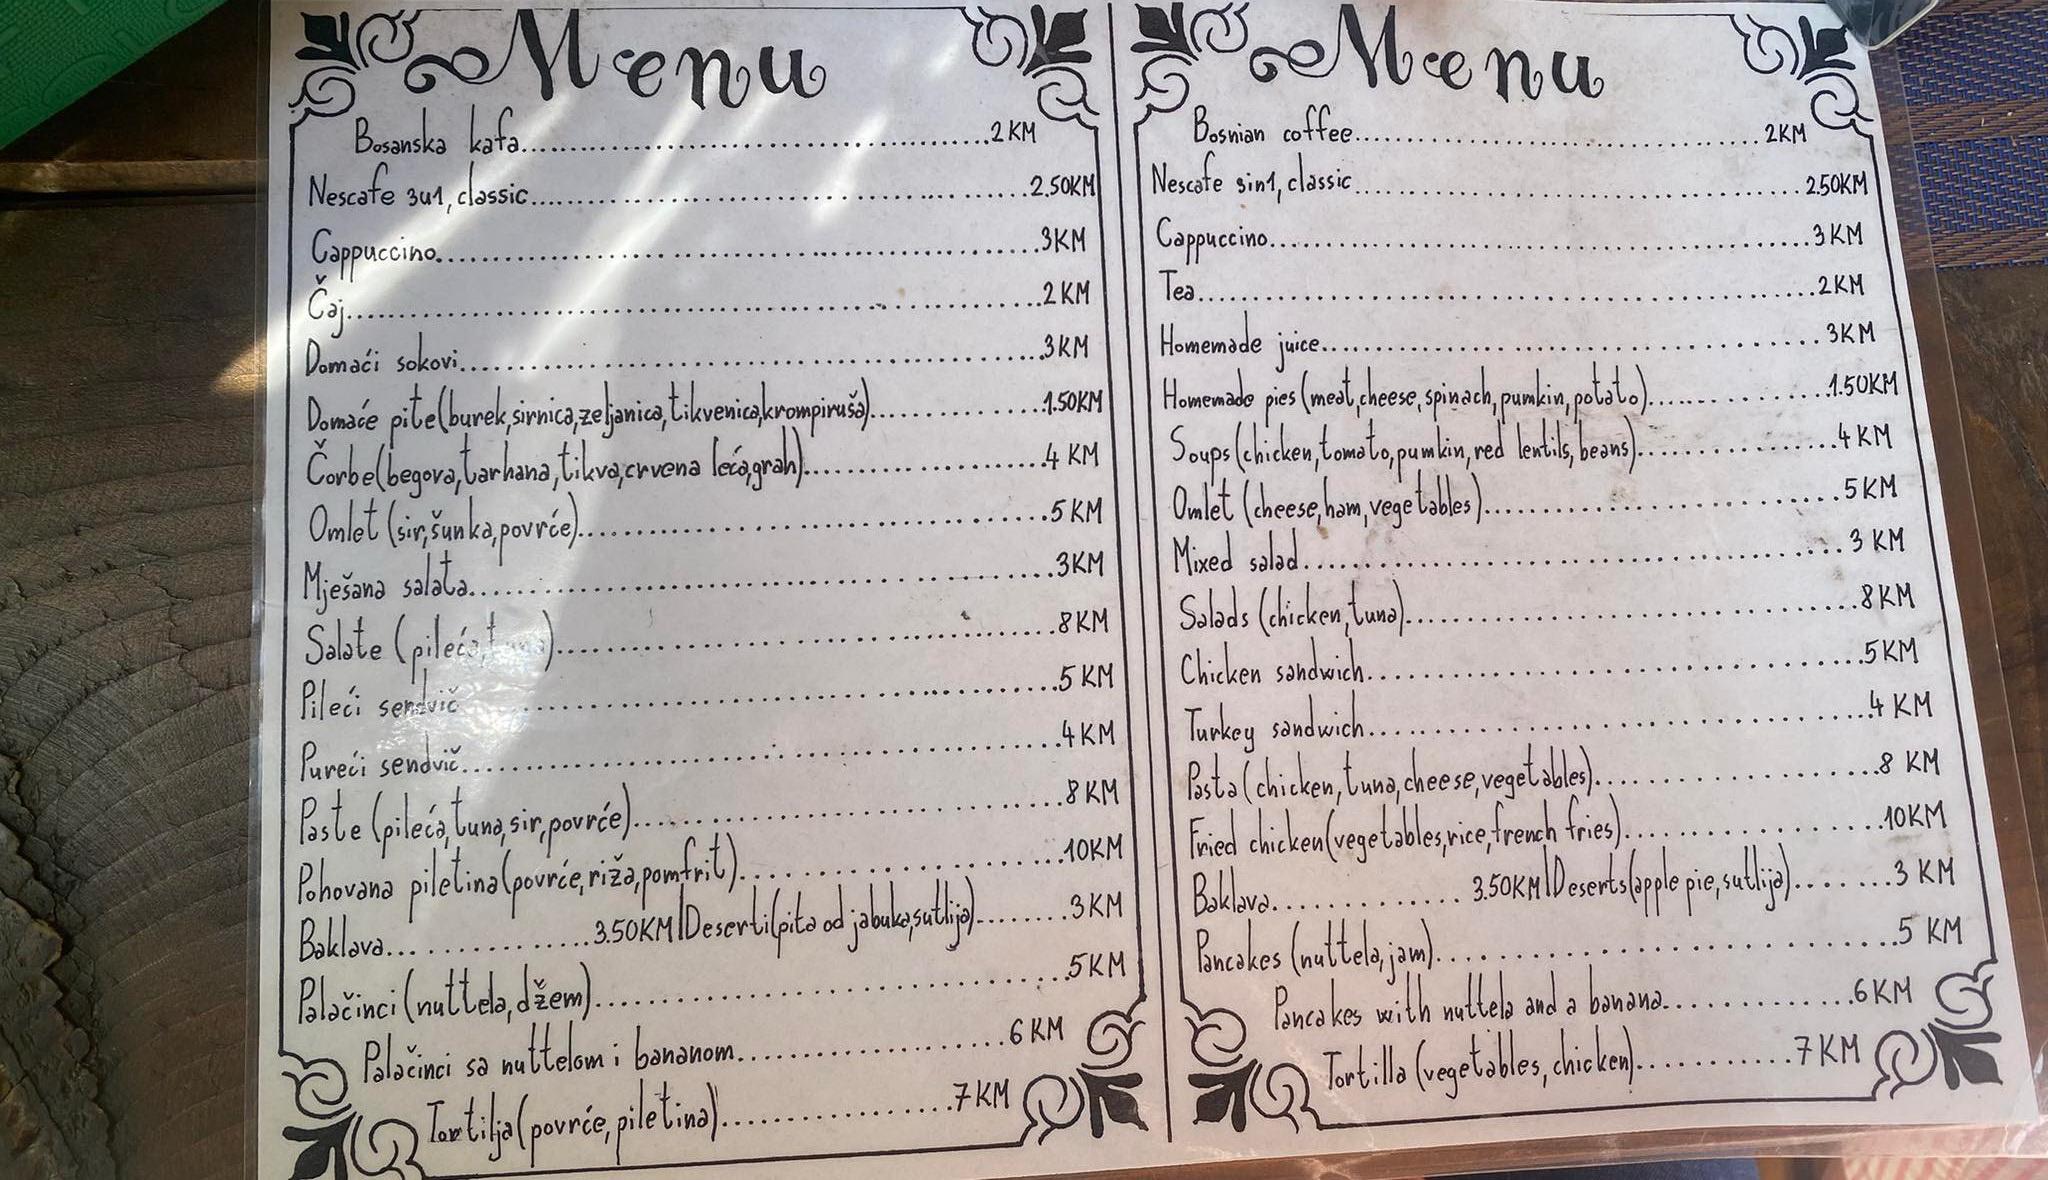 Menu
Bosanska kafa..........2 KM
Nescafe 3u1, classic..........2.50KM
Cappuccino..........3KM
Čaj..........2 KM
Domaći sokovi..........3KM
Domaće pite(burek,sirnica,zeljanica,tikvenica,krompiruša)..........1.50KM
Čorbe(begova,tarhana,tikva,crvena leća,grah)..........4 KM
Omlet (sir,šunka,povrće)..........5 KM
Mješana salata..........3KM
Salate (pileća,tuna)..........8KM
Pileći sendvič..........5 KM
Pureći sendvič..........4 KM
Paste (pileća,tuna,sir,povrće)..........8KM
Pohovana piletina(povrće,riža,pomfrit)..........10KM
Baklava..........3.50KM|Deserti(pita od jabuka,sutlija)..........3KM
Palačinci (nuttela,džem)..........5KM
Palačinci sa nuttelom i bananom..........6 KM
Tortilja(povrće,piletina)..........7 KM
Menu
Bosnian coffee..........2KM
Nescafe 3in1, classic..........2.50KM
Cappuccino..........3 KM
Tea..........2KM
Homemade juice..........3KM
Homemade pies (meat,cheese,spinach,pumkin,potato)..........1.50KM
Soups(chicken,tomato,pumkin,red lentils,beans)..........4 KM
Omlet (cheese,ham,vegetables)..........5 KM
Mixed salad..........3 KM
Salads (chicken,tuna)..........8KM
Chicken sandwich..........5KM
Turkey sandwich..........4 KM
Pasta(chicken,tuna,cheese,vegetables)..........8 KM
Fried chicken(vegetables,rice,french fries)..........10KM
Baklava..........3.50KM|Deserts(apple pie,sutlija)..........3 KM
Pancakes (nuttela,jam)..........5 KM
Pancakes with nuttela and a banana..........6KM
Tortilla (vegetables, chicken)..........7 KM